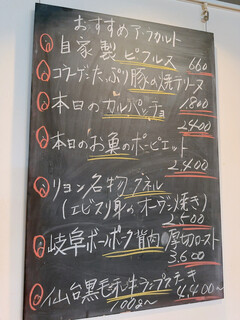 おすすめア・ラカルト
自家製ピクルス 660
コラーゲンたっぷり豚の焼テリーヌ
1,800
本日のカルパッチョ
2400
本日のお菓のポーピエット
2,400
リヨン名物クネル
(エビスリ身のオーヴン焼き)
2,500
岐阜ボーノポーク背肉 厚切ロースト
3,600
仙台黒毛和牛ランプステーキ
100g〜 4,400〜